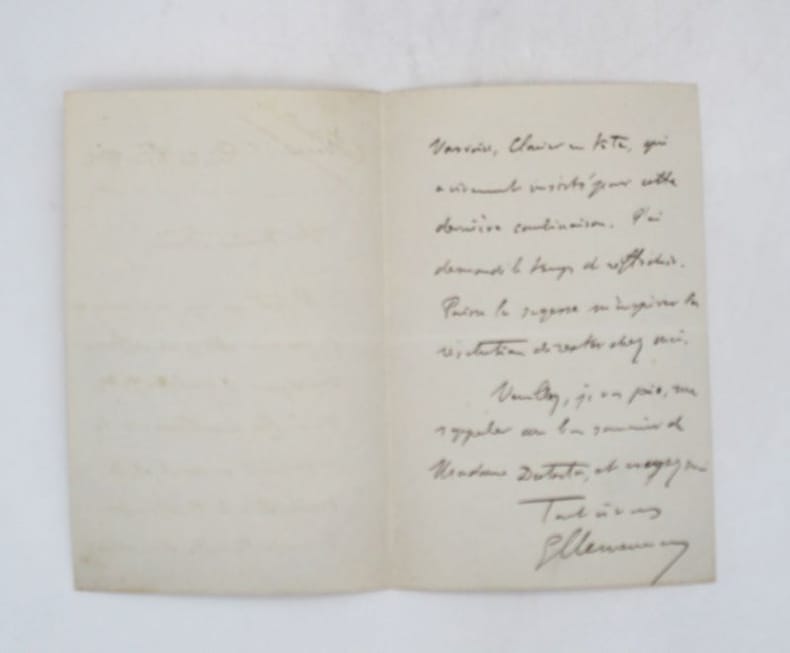 Varois, Clavier en tête, qui
a vivement insisté pour cette
dernière combinaison. J'ai
demandé le temps de réfléchir.
Puisse la sagesse m'inspirer la
résolution de rester chez moi.
Veuillez, je vous prie, me
rappeler au bon souvenir de
Madame et croyez moi
Tout à vous
GClemenceau